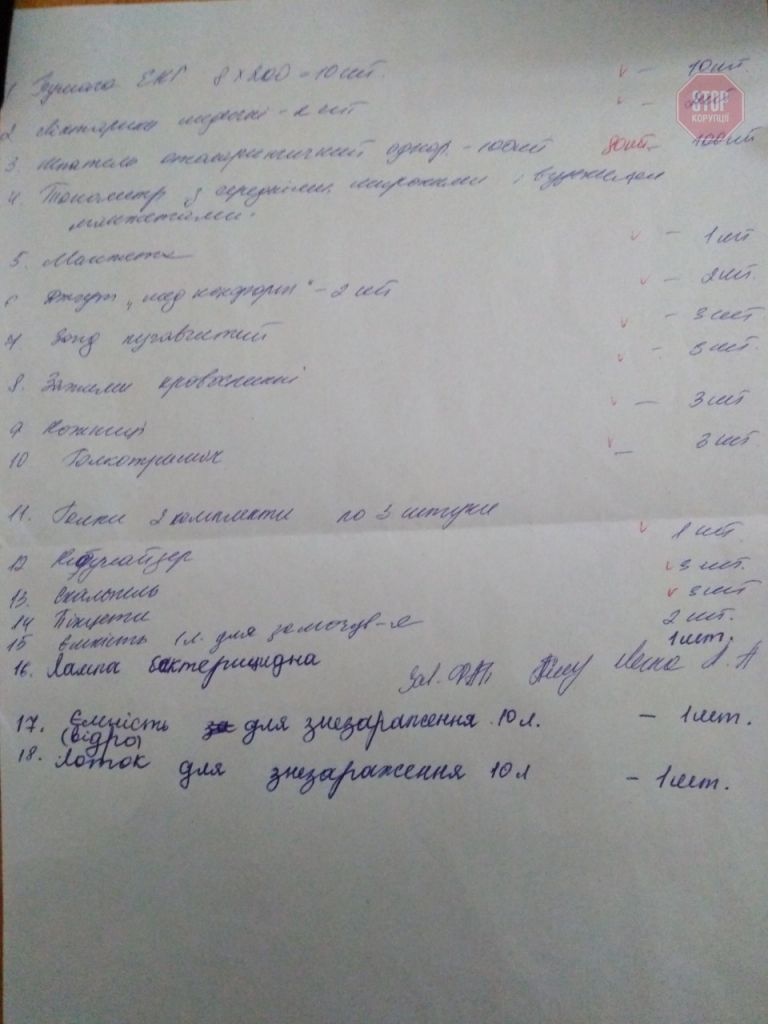 1 Бумага ЕКГ 8 х 200 = 10 шт. v — 10 шт.
2 медичні - 2 шт v — 2 шт
STOP
КОРУПЦІЇ
3. Шпатель отоларингічний однор. - 100 шт 80 шт. — 100 шт
4. Тонометр з середніми, широкими і вузькими
манжетами. v — 1 шт
5. Манжета
6 Джгут „мед комфорт" - 2 шт v — 2 шт.
7 Зонд пугавчатий v — 3 шт
8. Зажими кровоспинні v — 3 шт.
9 Ножниці v — 3 шт
10 Голкотримач v — 3 шт
11. Голки 2 комплекти по 3 штуки
12 Небулайзер v 1 шт.
13. Скальпель v 3 шт.
14 Пінцети v 3 шт
15 Ємкість 1 л. для замочув-я 2 шт.
16. Лампа бактерицидна 1 шт.
Зав. ФАП Л. А
17. Ємність для знезараження 10 л. — 1 шт.
(відро)
18. Лоток для знезараження 10 л — 1 шт.